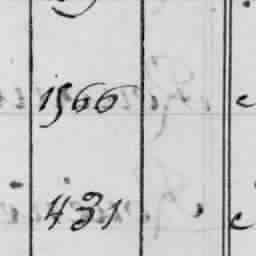 1566
431